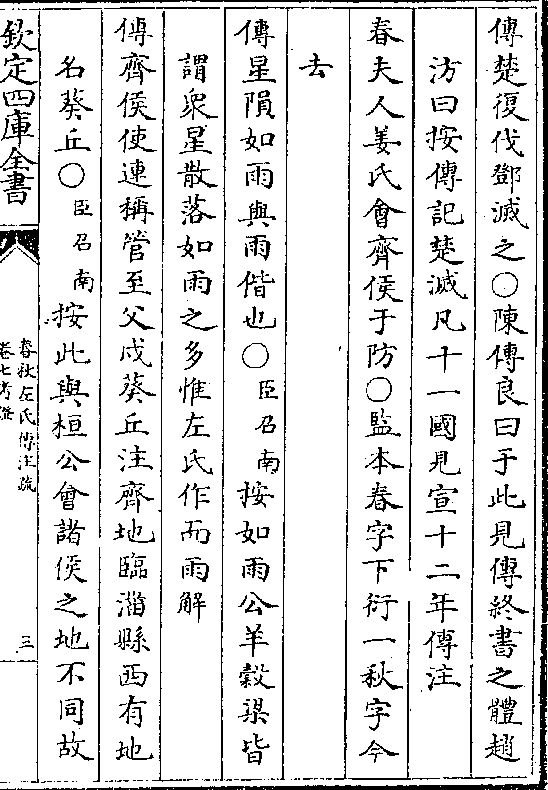 傳楚復伐鄧滅之〇陳傳良曰于此見傳終書之體趙
汸曰按傳記楚滅凡十一國見宣十二年傳注
春夫人姜氏會齊侯于防〇監本春字下衍一秋字今
去
傳星隕如雨與雨偕也〇臣召南按如雨公羊榖梁皆
謂衆星散落如雨之多惟左氏作而雨解
傳齊侯使連稱管至父戍葵丘注齊地臨淄縣西有地
名葵丘〇臣召南按此與桓公會諸侯之地不同故
欽定四庫全書
春秋左氏傳注疏
卷七考證
三